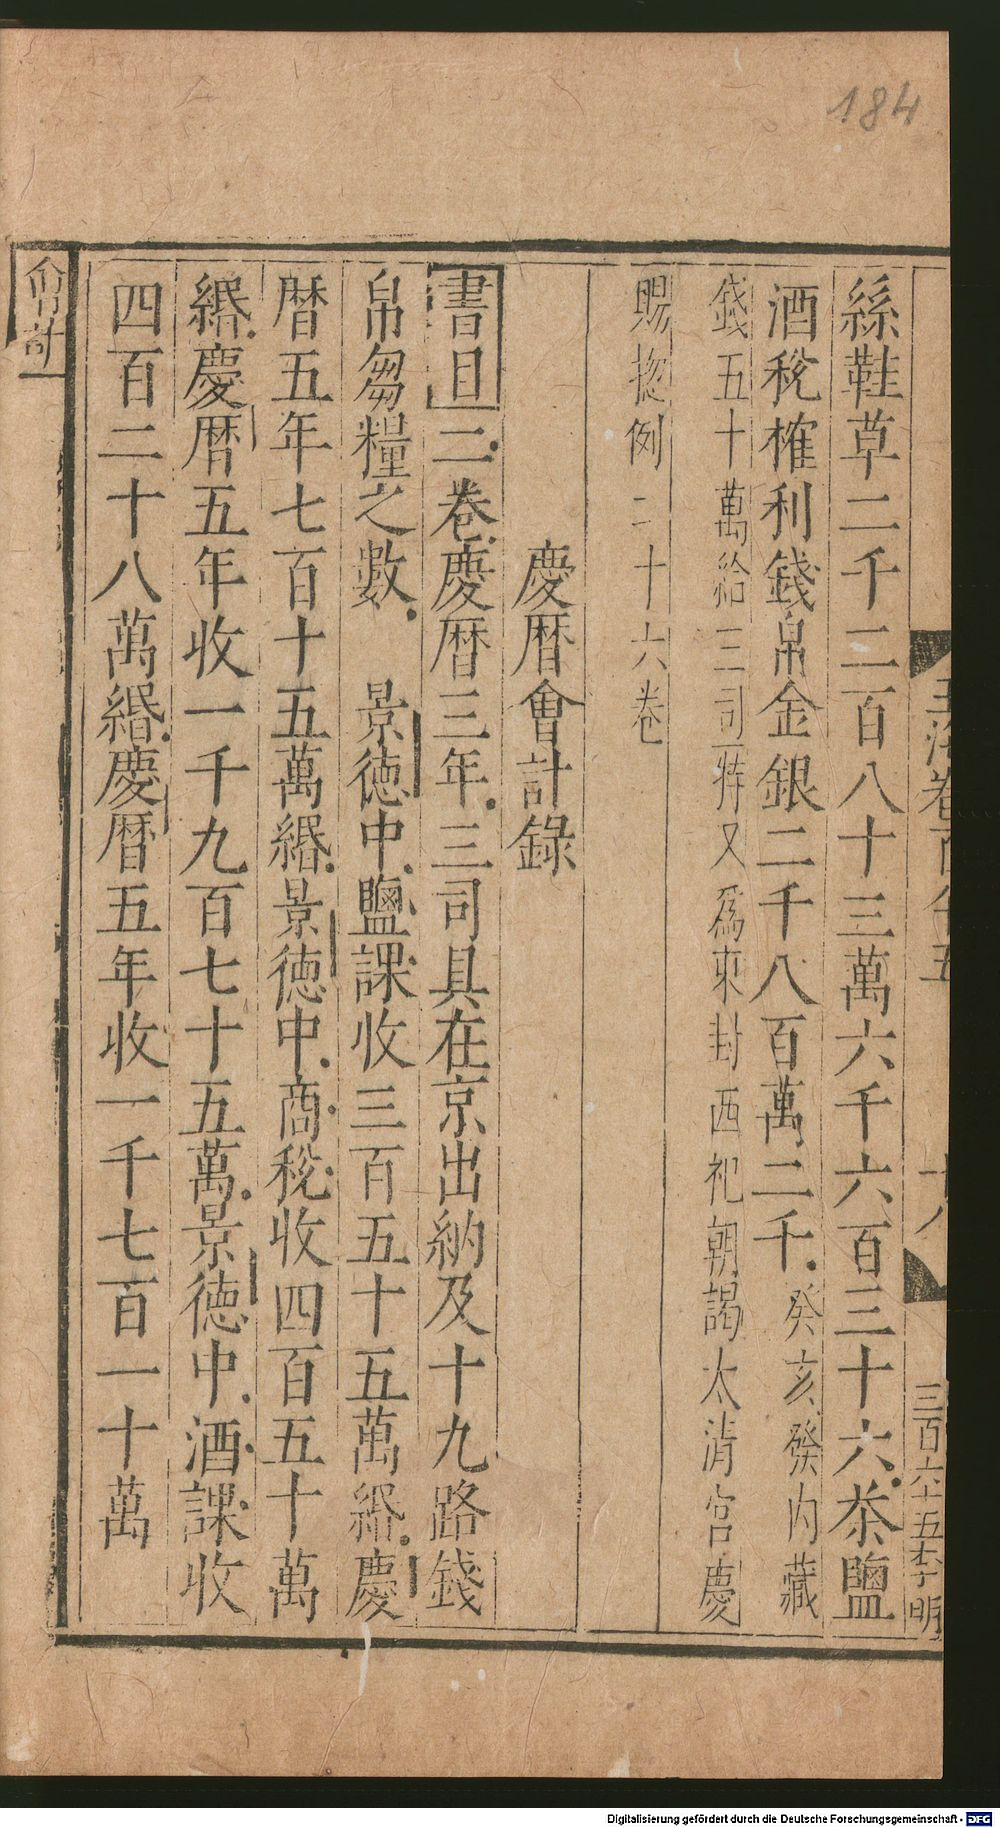 184
玉海卷百八十五
十八
三百六十五李明
絲鞋草二千二百八十三萬六千六百三十六茶鹽
酒稅榷利錢帛金銀二千八百萬二千癸亥發内藏
錢五十萬給三司特又爲東封西祀朝謁太清宮慶
賜揔例二十六卷
慶曆會計錄
書目二卷慶曆三年三司具在京出納及十九路錢
帛芻糧之數 景德中鹽課收三百五十五萬緡慶
曆五年七百十五萬緡景德中商稅收四百五十萬
緡慶曆五年收一千九百七十五萬景德中酒課收
四百二十八萬緡慶曆五年收一千七百一十萬
會計
Digitalisierung gefördert durch die Deutsche Forschungsgemeinschaft - DFG